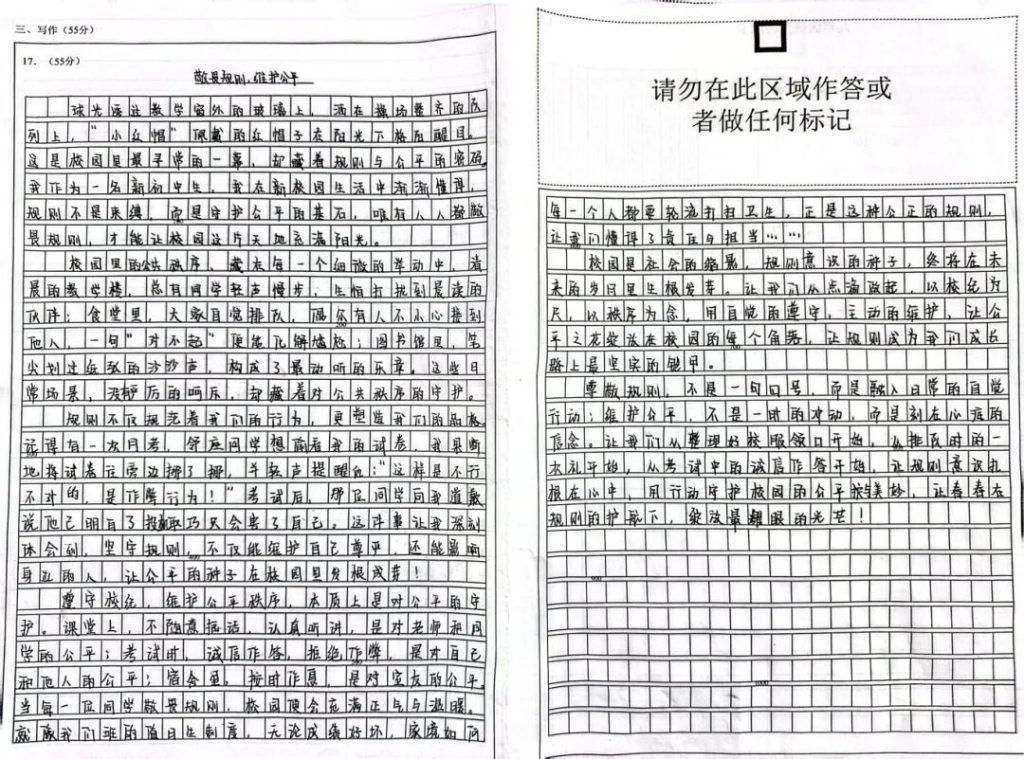 三、写作(55分)
17. (55分)
敬畏规则,维护公平
阳光透过教学窗外的玻璃上,洒在操场整齐的队
列上,“小红帽”佩戴的红帽子在阳光下格外醒目。
这是校园里最寻常的一幕,却藏着规则与公平的密码。
我作为一名新初中生,我在新校园生活中渐渐懂得,
规则不是束缚,而是守护公平的基石,唯有人人都敬
畏规则,才能让校园这片天地充满阳光。
校园里的公共秩序,藏在每一个细微的举动中,清
晨的教学楼,总有同学轻声慢步,生怕打扰到晨读的
伙伴;食堂里,大家自觉排队,偶尔有人不小心撞到
他人,一句“对不起”便能化解尴尬;图书馆里,笔
尖划过纸张的沙沙声,构成了最动听的乐章。这些日
常场景,没有严厉的呵斥,却藏着对公共秩序的守护。
规则不仅规范着我们的行为,更塑造我们的品格。
记得有一次月考,邻座同学想偷看我的试卷,我果断
地将试卷往旁边挪了挪,并轻声提醒他:“这样是不行
不对的,是作弊行为!”考试后,那位同学向我道歉
说他已明白了投机取巧只会害了自己。这件事让我深刻
体会到,坚守规则,不仅能维护自己尊严,还能影响
身边的人,让公平的种子在校园里发根成芽!
遵守校纪,维护公平秩序,本质上是对公平的守
护。课堂上,不随意插话,认真听讲,是对老师和同
学的公平;考试时,诚信作答,拒绝作弊,是对自己
和他人的公平;宿舍里。按时作息,是对室友的公平。
当每一位同学敬畏规则,校园便会充满正气与温暖。
就像我们班的值日生制度,无论成绩好坏,家境如何
请勿在此区域作答或
者做任何标记
每一个人都要轮流打扫卫生,正是这种公正的规则,
让我们懂得了责任与担当……
校园是社会的缩影,规则意识的种子,终将在未
来的岁月里生根发芽。让我们从点滴做起,以校纪为
尺,以秩序为念,用自觉的遵守,主动的维护,让公
平之花绽放在校园的每个角落,让规则成为我们成长
路上最坚实的铠甲。
尊敬规则,不是一句口号,而是融入日常的自觉
行动;维护公平,不是一时的冲动,而是刻在心底的
信念。让我们从整理好校服领口开始,从排队时的一
次礼开始,从考试中的诚信作答开始,让规则意识扎
根在心中,用行动守护校园的公平与美妙,让青春在
规则的护航下,绽放最耀眼的光芒!
900
1000